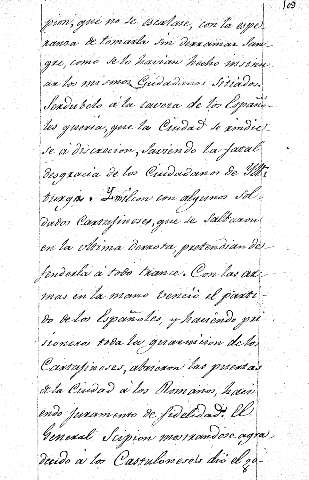 109
pion, que no se escalase, con la espe-
ranza de tomarla sin derramar San-
gre, como se lo havian hecho insinu-
ar los mismos Ciudadanos Sitiados.
Serdubelo à la caveza de los Españo-
les queria, que la Ciudad se rindie-
se à discrecion, saviendo la fatal
desgracia de los Ciudadanos de Illi-
turgi. Imilcon con algunos Sol-
dados Cartagineses, que se salbaron
en la ultima derrota, pretendian de-
fenderla à todo trance. Con las ar-
mas en la mano venció el parti-
do de los Españoles, y haciendo pri-
sioneros toda la guarnicion de los
Cartagineses, abrieron las puertas
de la Ciudad à los Romanos, haci-
endo juramento de fidelidad. El
General Scipion mostrandose agra-
decido à los Castuloneses dió el go-